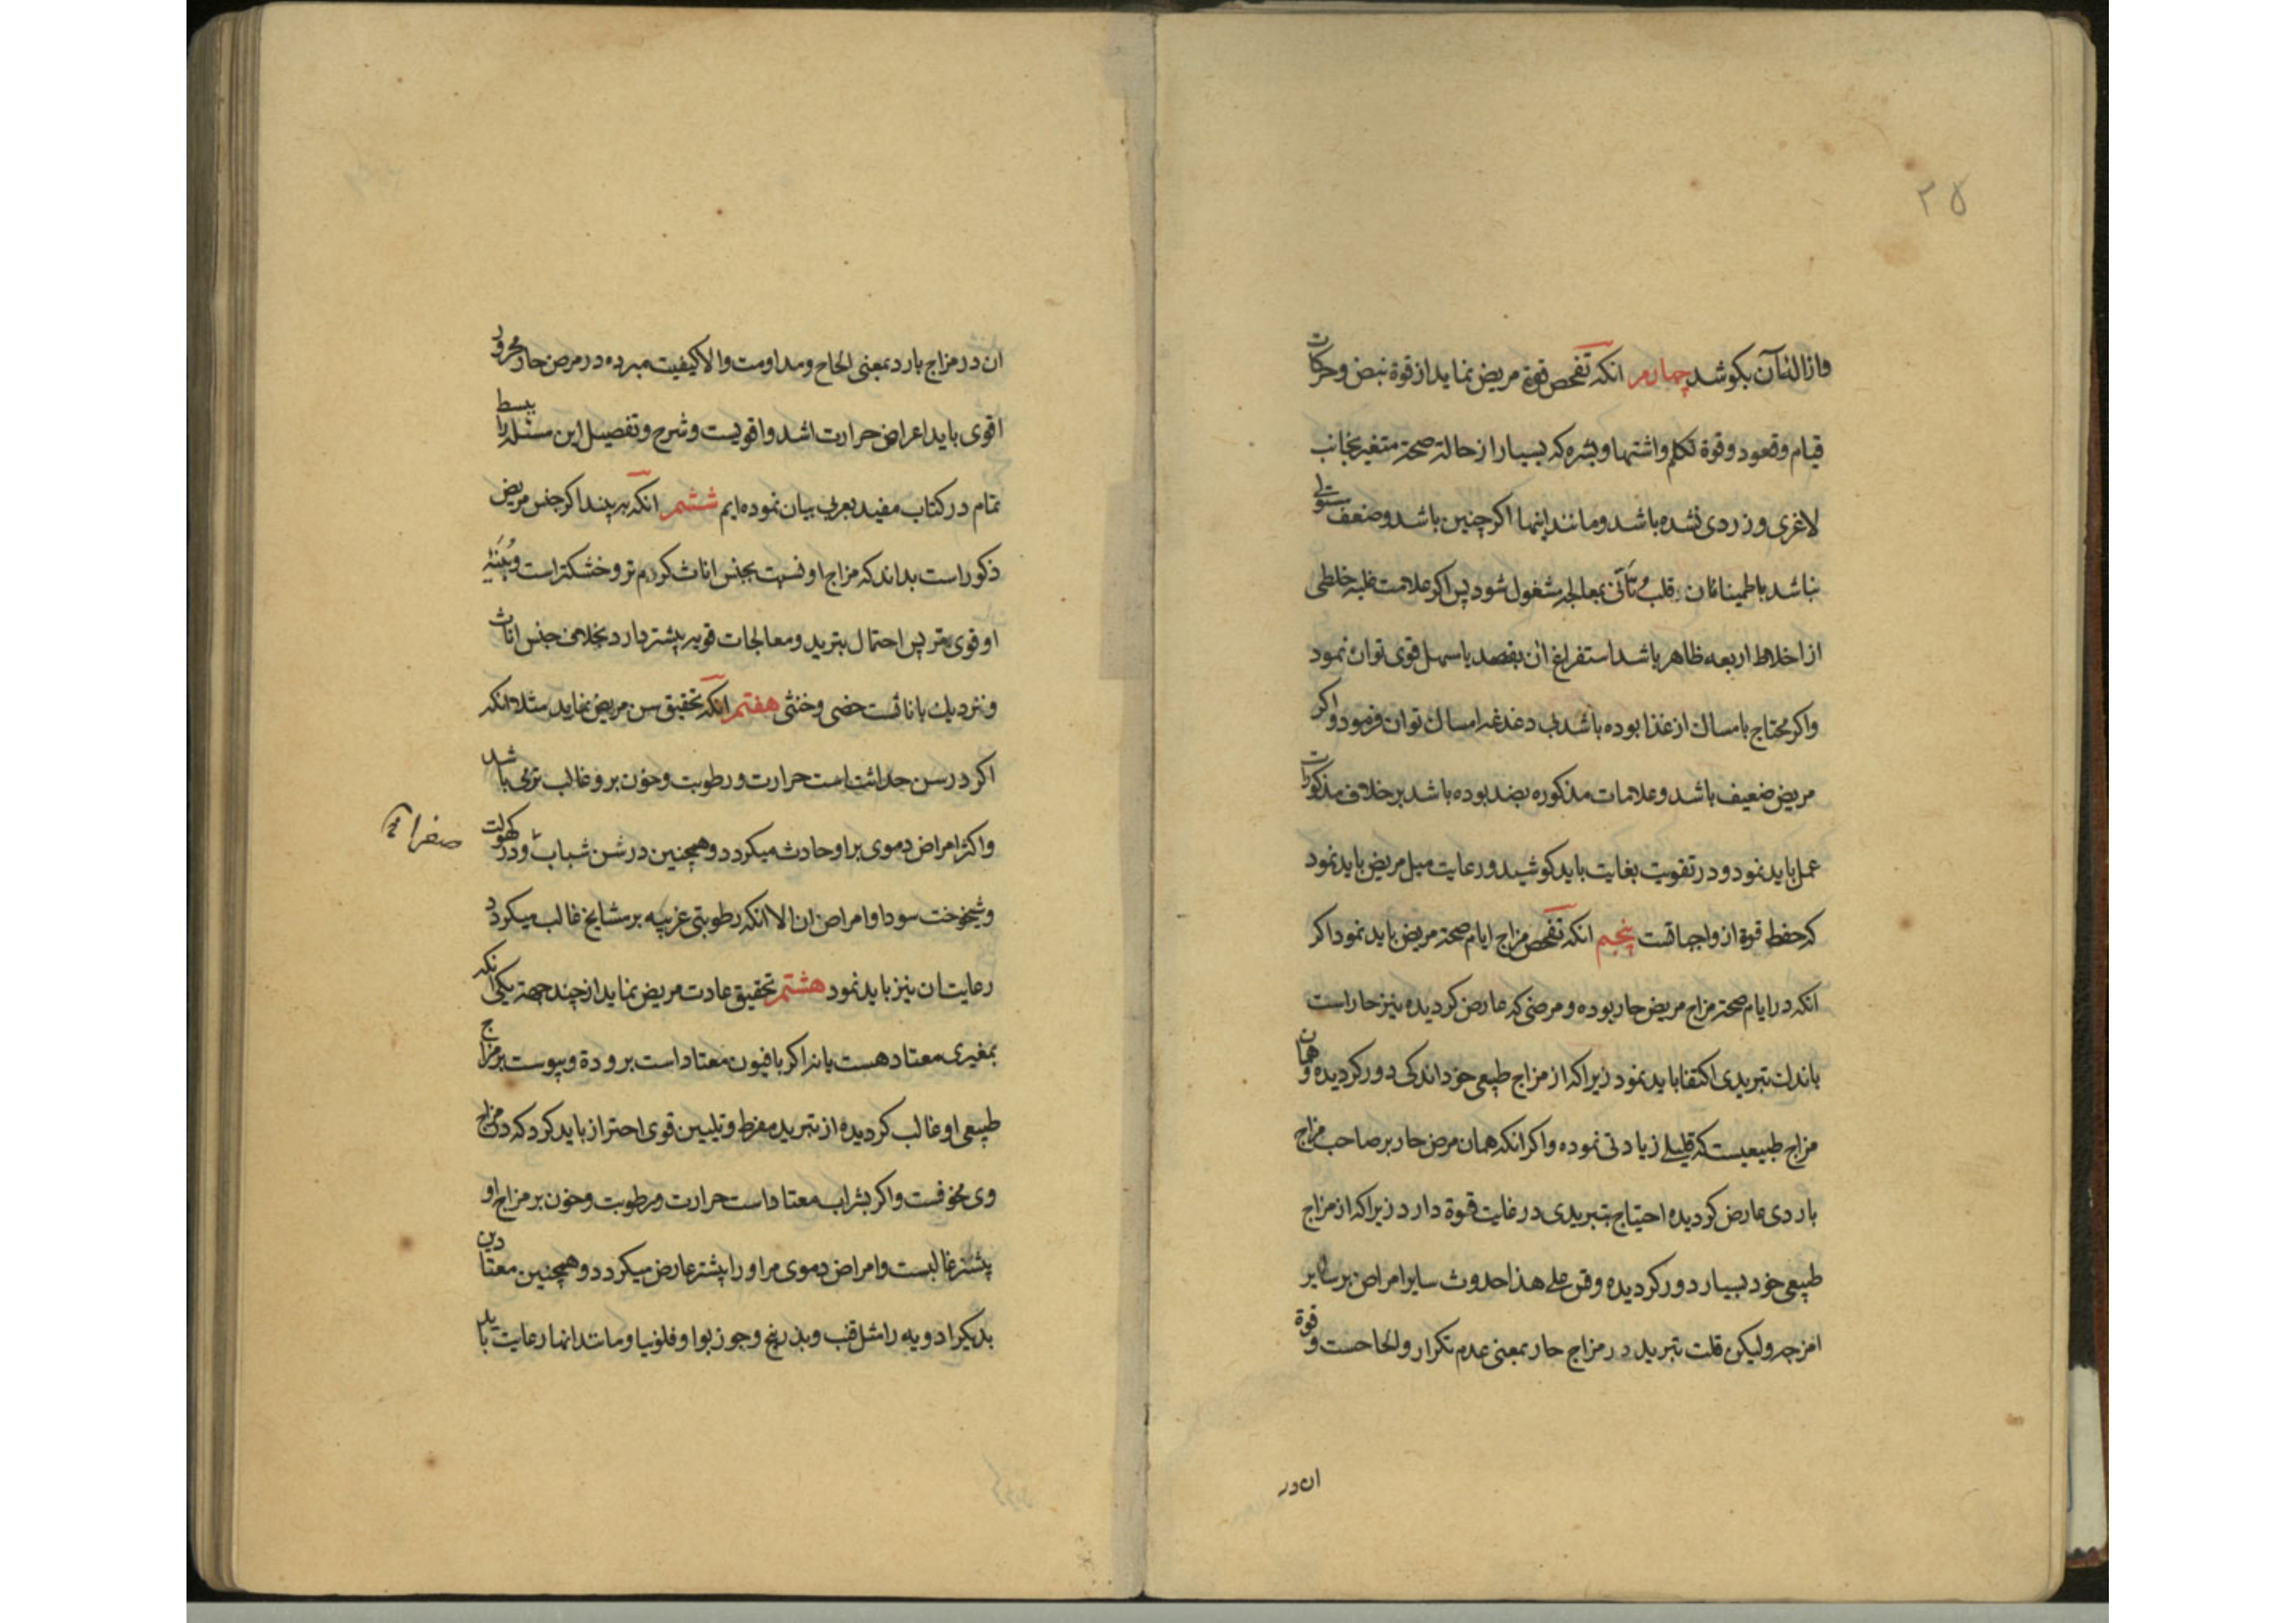 ۲۵
وازالۀ آن بکوشد چهارم انکه تفحص قوۀ مریض نماید از قوۀ نبض و حرکات
قیام و قعود و قوۀ تکلم و اشتها و بشره که بسیار از حالت صحة متغیر بجانب
لاغری و زردی نشده باشد و مانند اینها اکر چنین باشد و ضعف مستولی
نباشد باطمینان قلب و تأنی بمعالجه مشغول شود پس اکر علامت غلبه خلطی
از اخلاط اربعه ظاهر باشد استفراغ ان بفصد یا سهل قوی توان نمود
واکر محتاج بامساک از غذا بوده باشد بی دغدغه امساک توان فرمود و اکر
مریض ضعیف باشد و علامات مذکوره بضد بوده باشد بر خلاف مذکورات
عمل باید نمود و در تقویت بغایت باید کوشید و رعایت میل مریض باید نمود
که حفظ قوة از واجباتست پنجم انکه تفحص مزاج ایام صحة مریض باید نمود اکر
انکه در ایام صحة مزاج مریض حار بوده و مرضی که عارض کردیده نیز حار است
باندک تبریدی اکتفا باید نمود زیرا که از مزاج طبیعی خود اندکی دور کردیده و همان
مزاج طبیعیست که قلیلی زیادتی نموده و اکر انکه همان مرض حار بر صاحب مزاج
باردی عارض کردیده احتیاج بتبریدی در غایت قوة دارد زیرا که از مزاج
طبیعی خود بسیار دور کردیده و قس علی هذا حدوث سایر امراض بر سایر
امزجه ولیکن قلت تبرید در مزاج حار بمعنی عدم تکرار و الحاحست و قوة
ان در
ان در مزاج بارد بمعنی الحاح و مداومت والا کیفیت مبرده در مرض حار و محرور
اقوی باید اعراض حرارت اشد و اقویست و شرح و تفصیل این مسئله را ببسط
تمام در کتاب مفید بعربی بیان نموده ایم ششم انکه ببیند اکر جنس مریض
ذکور است بداند که مزاج او نسبت بجنس اناث کرم تر و خشکتر است و بنیۀ
او قوی تر پس احتمال تبرید و معالجات قویه بیشتر دارد بخلاف جنس اناث
و نزدیک باناثست خصی و خنثی هفتم انکه تحقیق سن مریض نماید مثلا انکه
اکر در سن حداثت است حرارت و رطوبت و خون بر و غالب ترمی باشد
و اکثر امراض دموی بر او حادث میکردد و همچنین در سن شباب و در کهولت
صفرا
و شیخوخت سودا و امراض ان الا انکه رطوبتی غریبه بر مشایخ غالب میکردد
رعایت ان نیز باید نمود هشتم تحقیق عادت مریض نماید از چند جهة یکی انکه
بمغیری معتاد هست یا نه اکر بافیون معتاد است برودة و یبوست بر مزاج
طبیعی او غالب کردیده از تبرید مفرط و تلیین قوی احتراز باید کرد که در مزاج
وی مخوفست و اکر بشراب معتاد است حرارت و رطوبت و خون بر مزاج او
بیشتر غالبست و امراض دموی مر او را بیشتر عارض میکردد و همچنین معتادین
بدیکر ادویه را مثل قنب و بذر بنج و جوز بوا و فلونیا و مانند انها رعایت باید